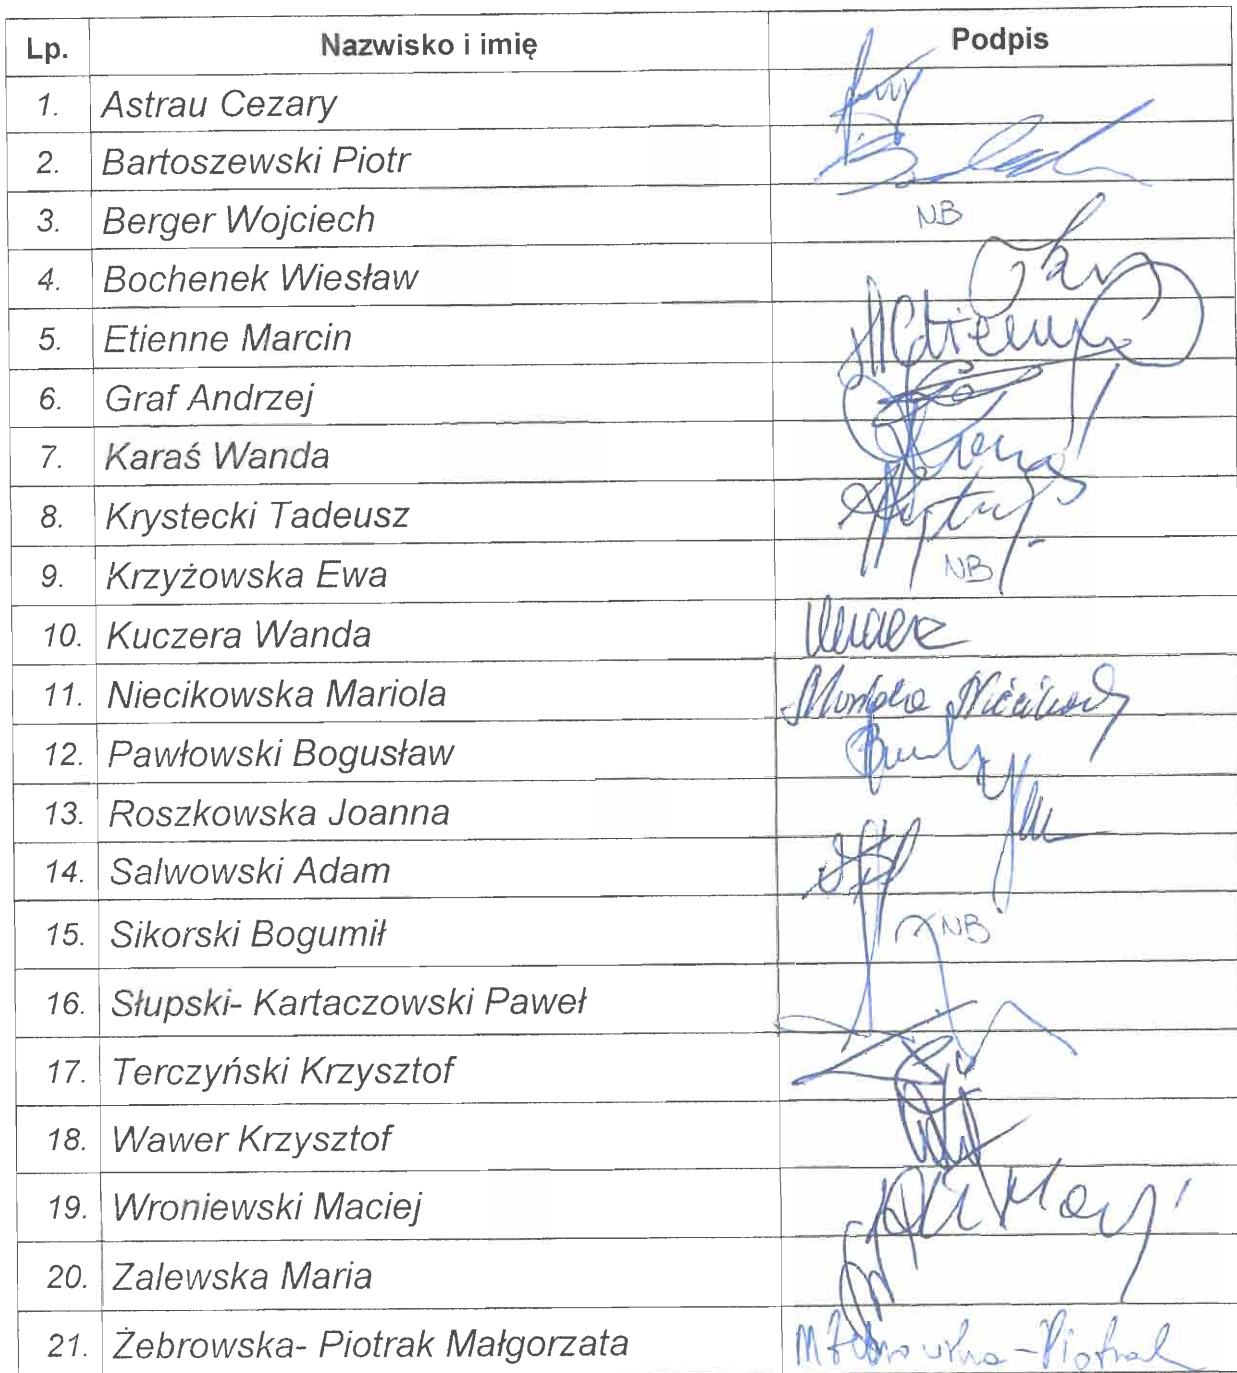 Lp. Nazwisko i imię Podpis
1. Astrau Cezary
2. Bartoszewski Piotr
3. Berger Wojciech NB
4. Bochenek Wiesław
5. Etienne Marcin
6. Graf Andrzej
7. Karaś Wanda
8. Krystecki Tadeusz
9. Krzyżowska Ewa NB
10. Kuczera Wanda
11. Niecikowska Mariola
12. Pawłowski Bogusław
13. Roszkowska Joanna
14. Salwowski Adam
15. Sikorski Bogumił NB
16. Słupski- Kartaczowski Paweł
17. Terczyński Krzysztof
18. Wawer Krzysztof
19. Wroniewski Maciej
20. Zalewska Maria
21. Żebrowska- Piotrak Małgorzata M Żebrowska-Piotrak